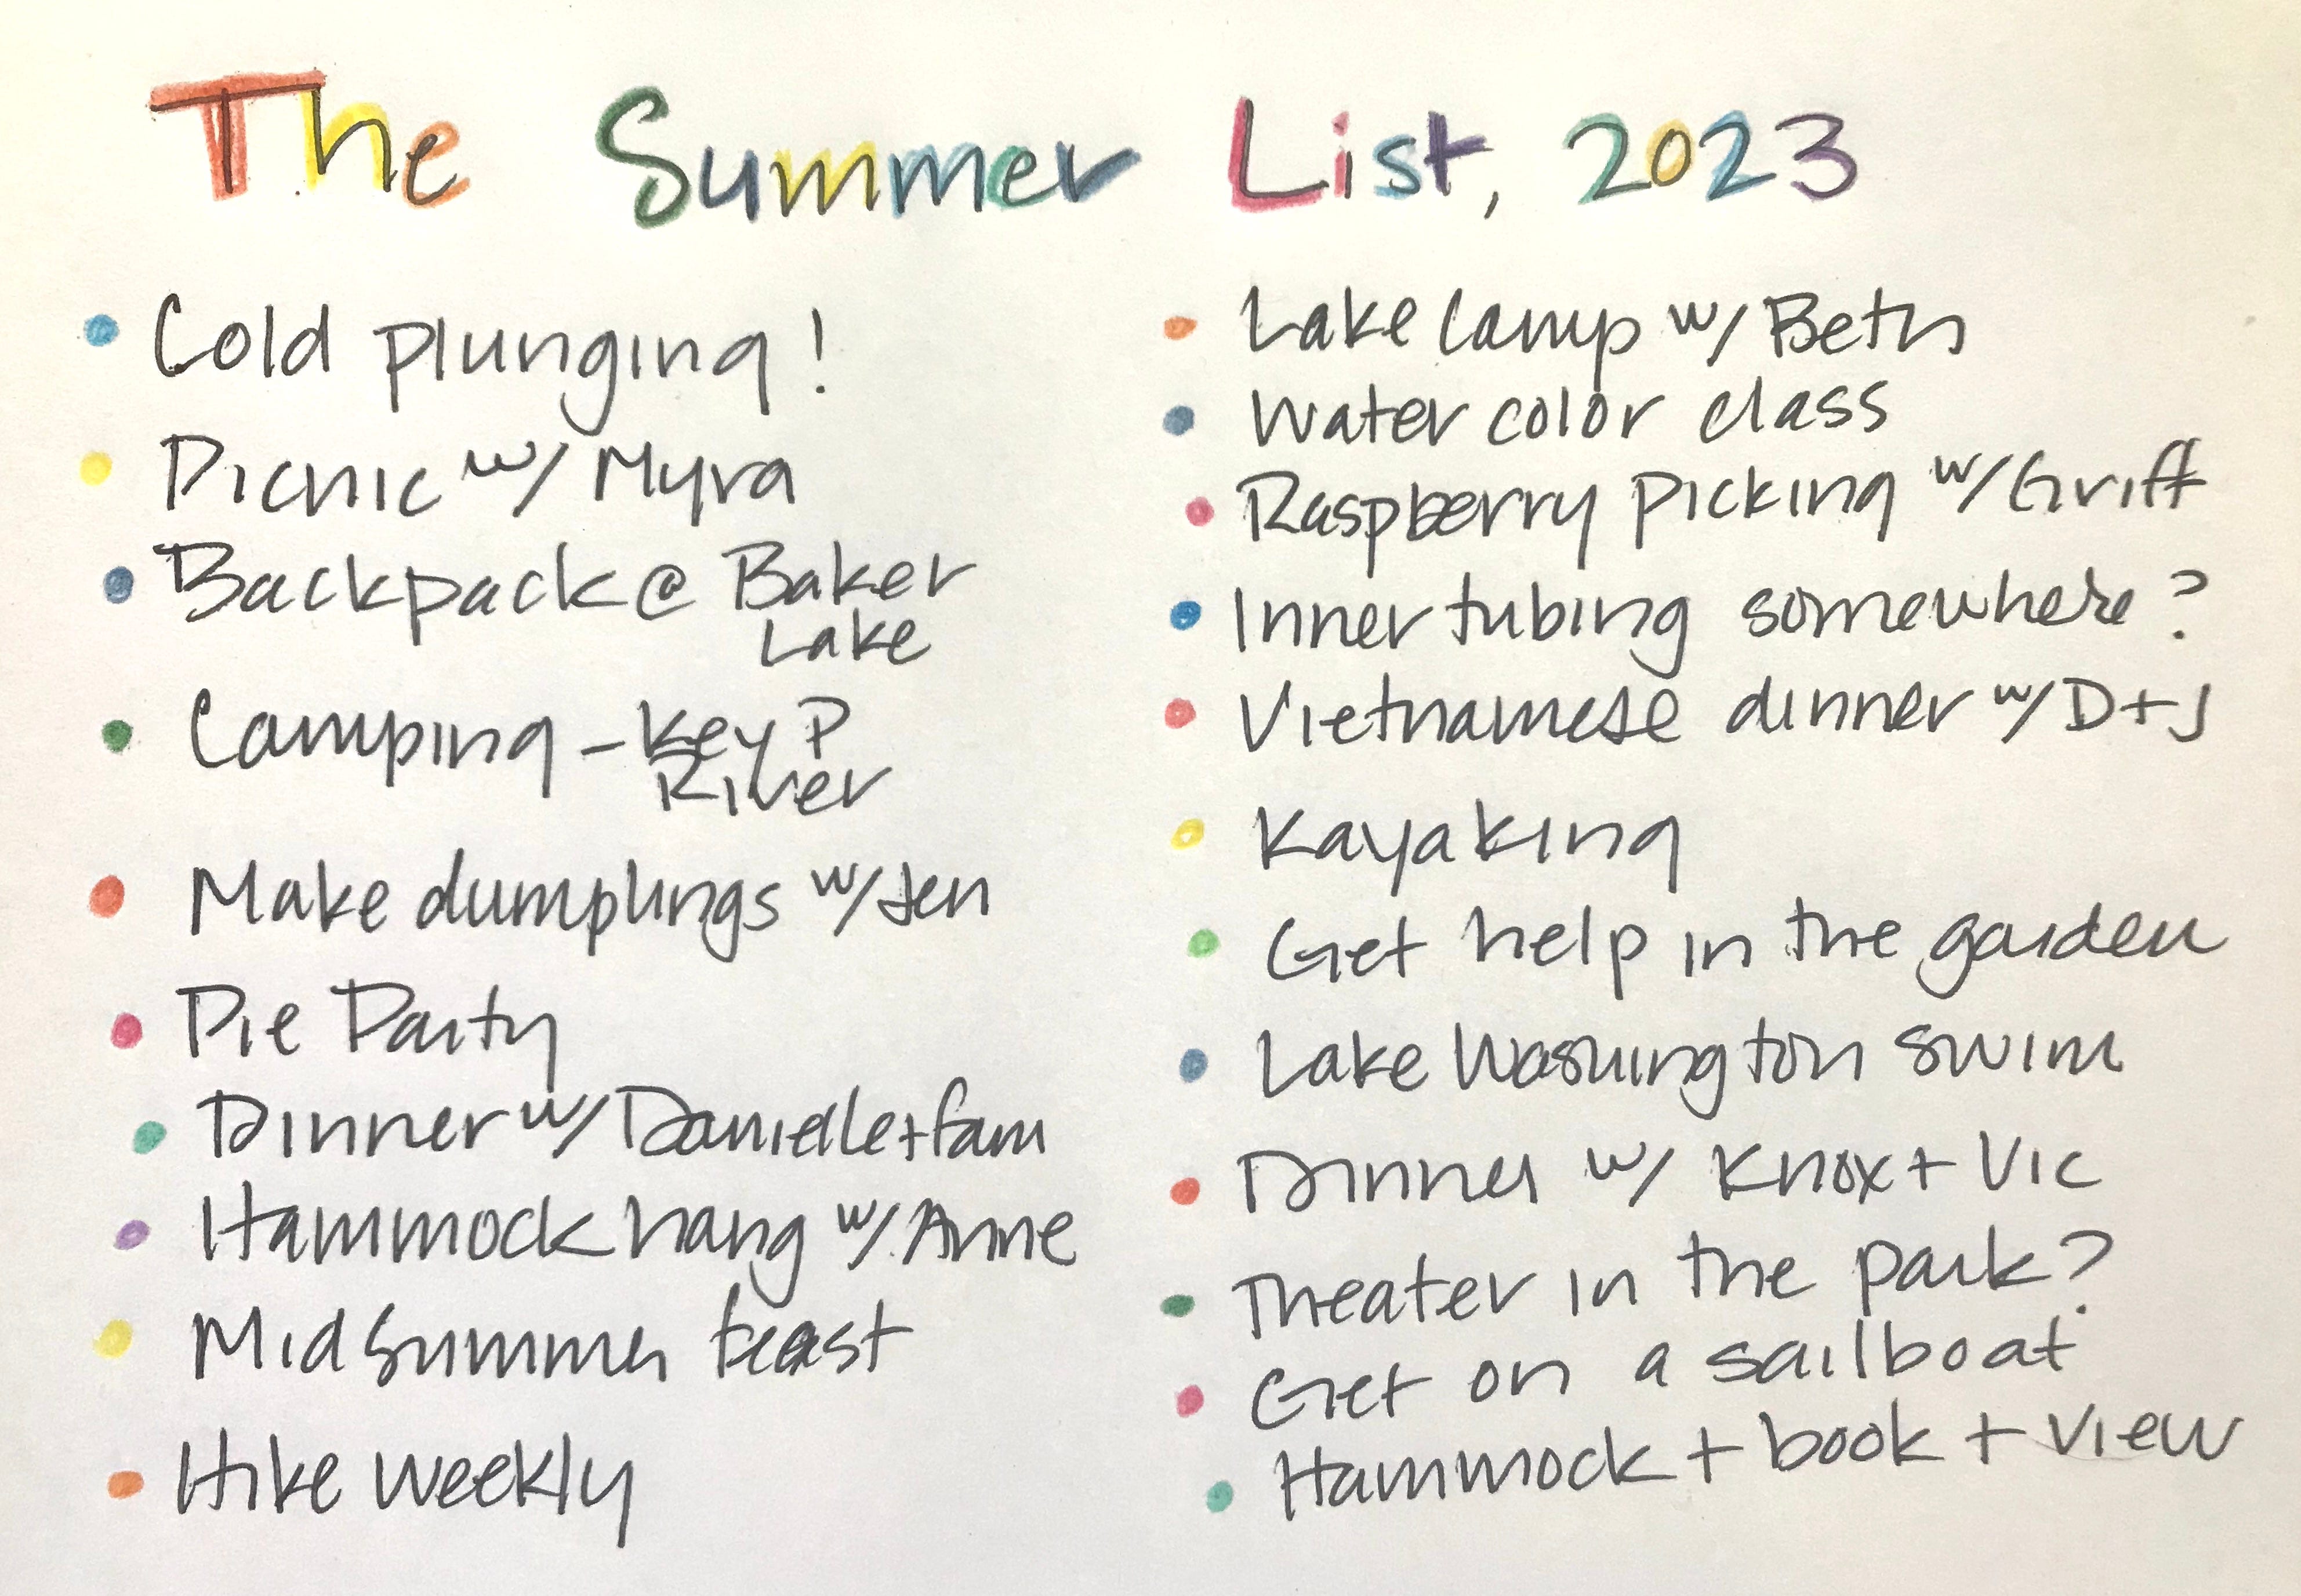 The Summer List, 2023
Cold plunging!
Picnic w/ Myra
Backpack @ Baker
Lake
Camping - Key P
River
Make dumplings w/ Jen
Pie Party
Dinner w/ Danielle + fam
Hammock hang w/ Anne
Midsummer feast
Hike weekly
Lake Camp w/ Beth
Water color class
Raspberry picking w/ Griff
Inner tubing somewhere?
Vietnamese dinner w/ D + J
Kayaking
Get help in the garden
Lake Washington swim
Dinner w/ Knox + Vic
Theater in the park?
Get on a sailboat
Hammock + book + view